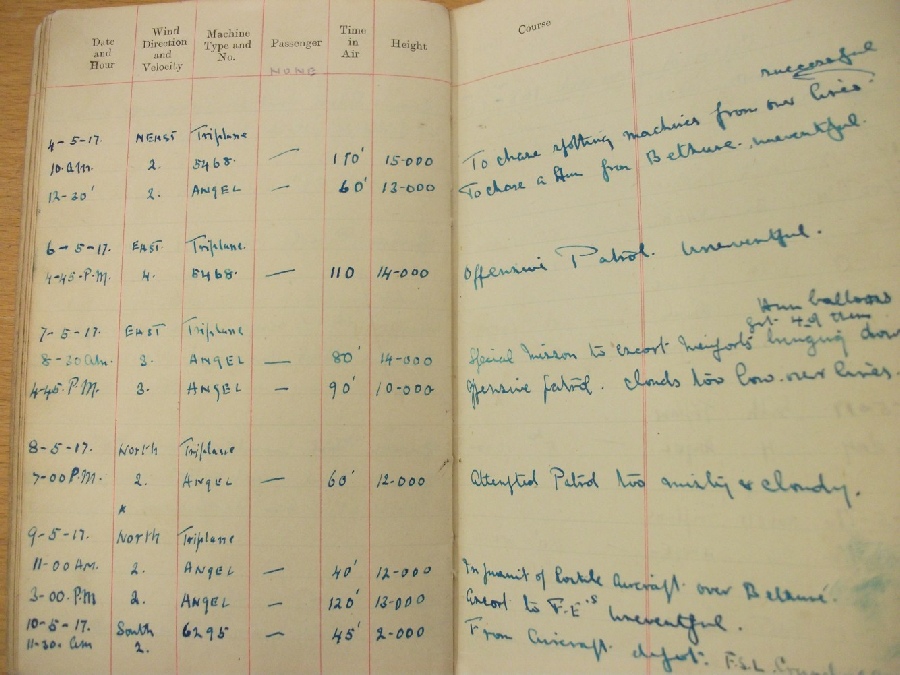 Date and Hour | Wind Direction and Velocity | Machine Type and No. | Passenger | Time in Air | Height | Course
NONE
successful
4-5-17. NEAST Triplane
10 AM. 2. 5468. — 110' 15-000 To chase spotting machines from our lines.
12-30' 2. ANGEL — 60' 13-000 To chase a Hun from Bethune, uneventful.
6-5-17. EAST Triplane.
4-45. P.M. 4. 5468. — 110 14-000 Offensive Patrol. Uneventful.
Hun balloons
7-5-17. EAST Triplane got 4 of them
8-30 am. 3. ANGEL — 80' 14-000 Special mission to escort Nieuports bringing down
4-45 P.M. 3. ANGEL — 90' 10-000 Offensive patrol. clouds too low over lines.
8-5-17. North Triplane
7-00 P.M. 2. ANGEL — 60' 12-000 Attempted Patrol too misty & cloudy.
9-5-17. North Triplane
11-00 AM. 2. ANGEL — 40' 12-000 In pursuit of hostile aircraft over Bethune.
3-00. P.M 2. ANGEL — 120' 13-000 Escort to F.E's uneventful.
10-5-17. South 6295 — 45' 2-000 From Aircraft depot.
11-30. am 2.